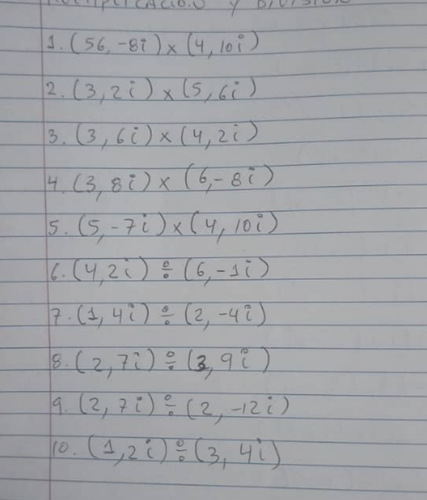 MULTIPLICACION Y DIVISION
1. (56, -8i) x (4, 10i)
2. (3, 2i) x (5, 6i)
3. (3, 6i) x (4, 2i)
4. (3, 8i) x (6, -8i)
5. (5, -7i) x (4, 10i)
6. (4, 2i) ÷ (6, -1i)
7. (1, 4i) ÷ (2, -4i)
8. (2, 7i) ÷ (3, 9i)
9. (2, 7i) ÷ (2, -12i)
10. (1, 2i) ÷ (3, 4i)